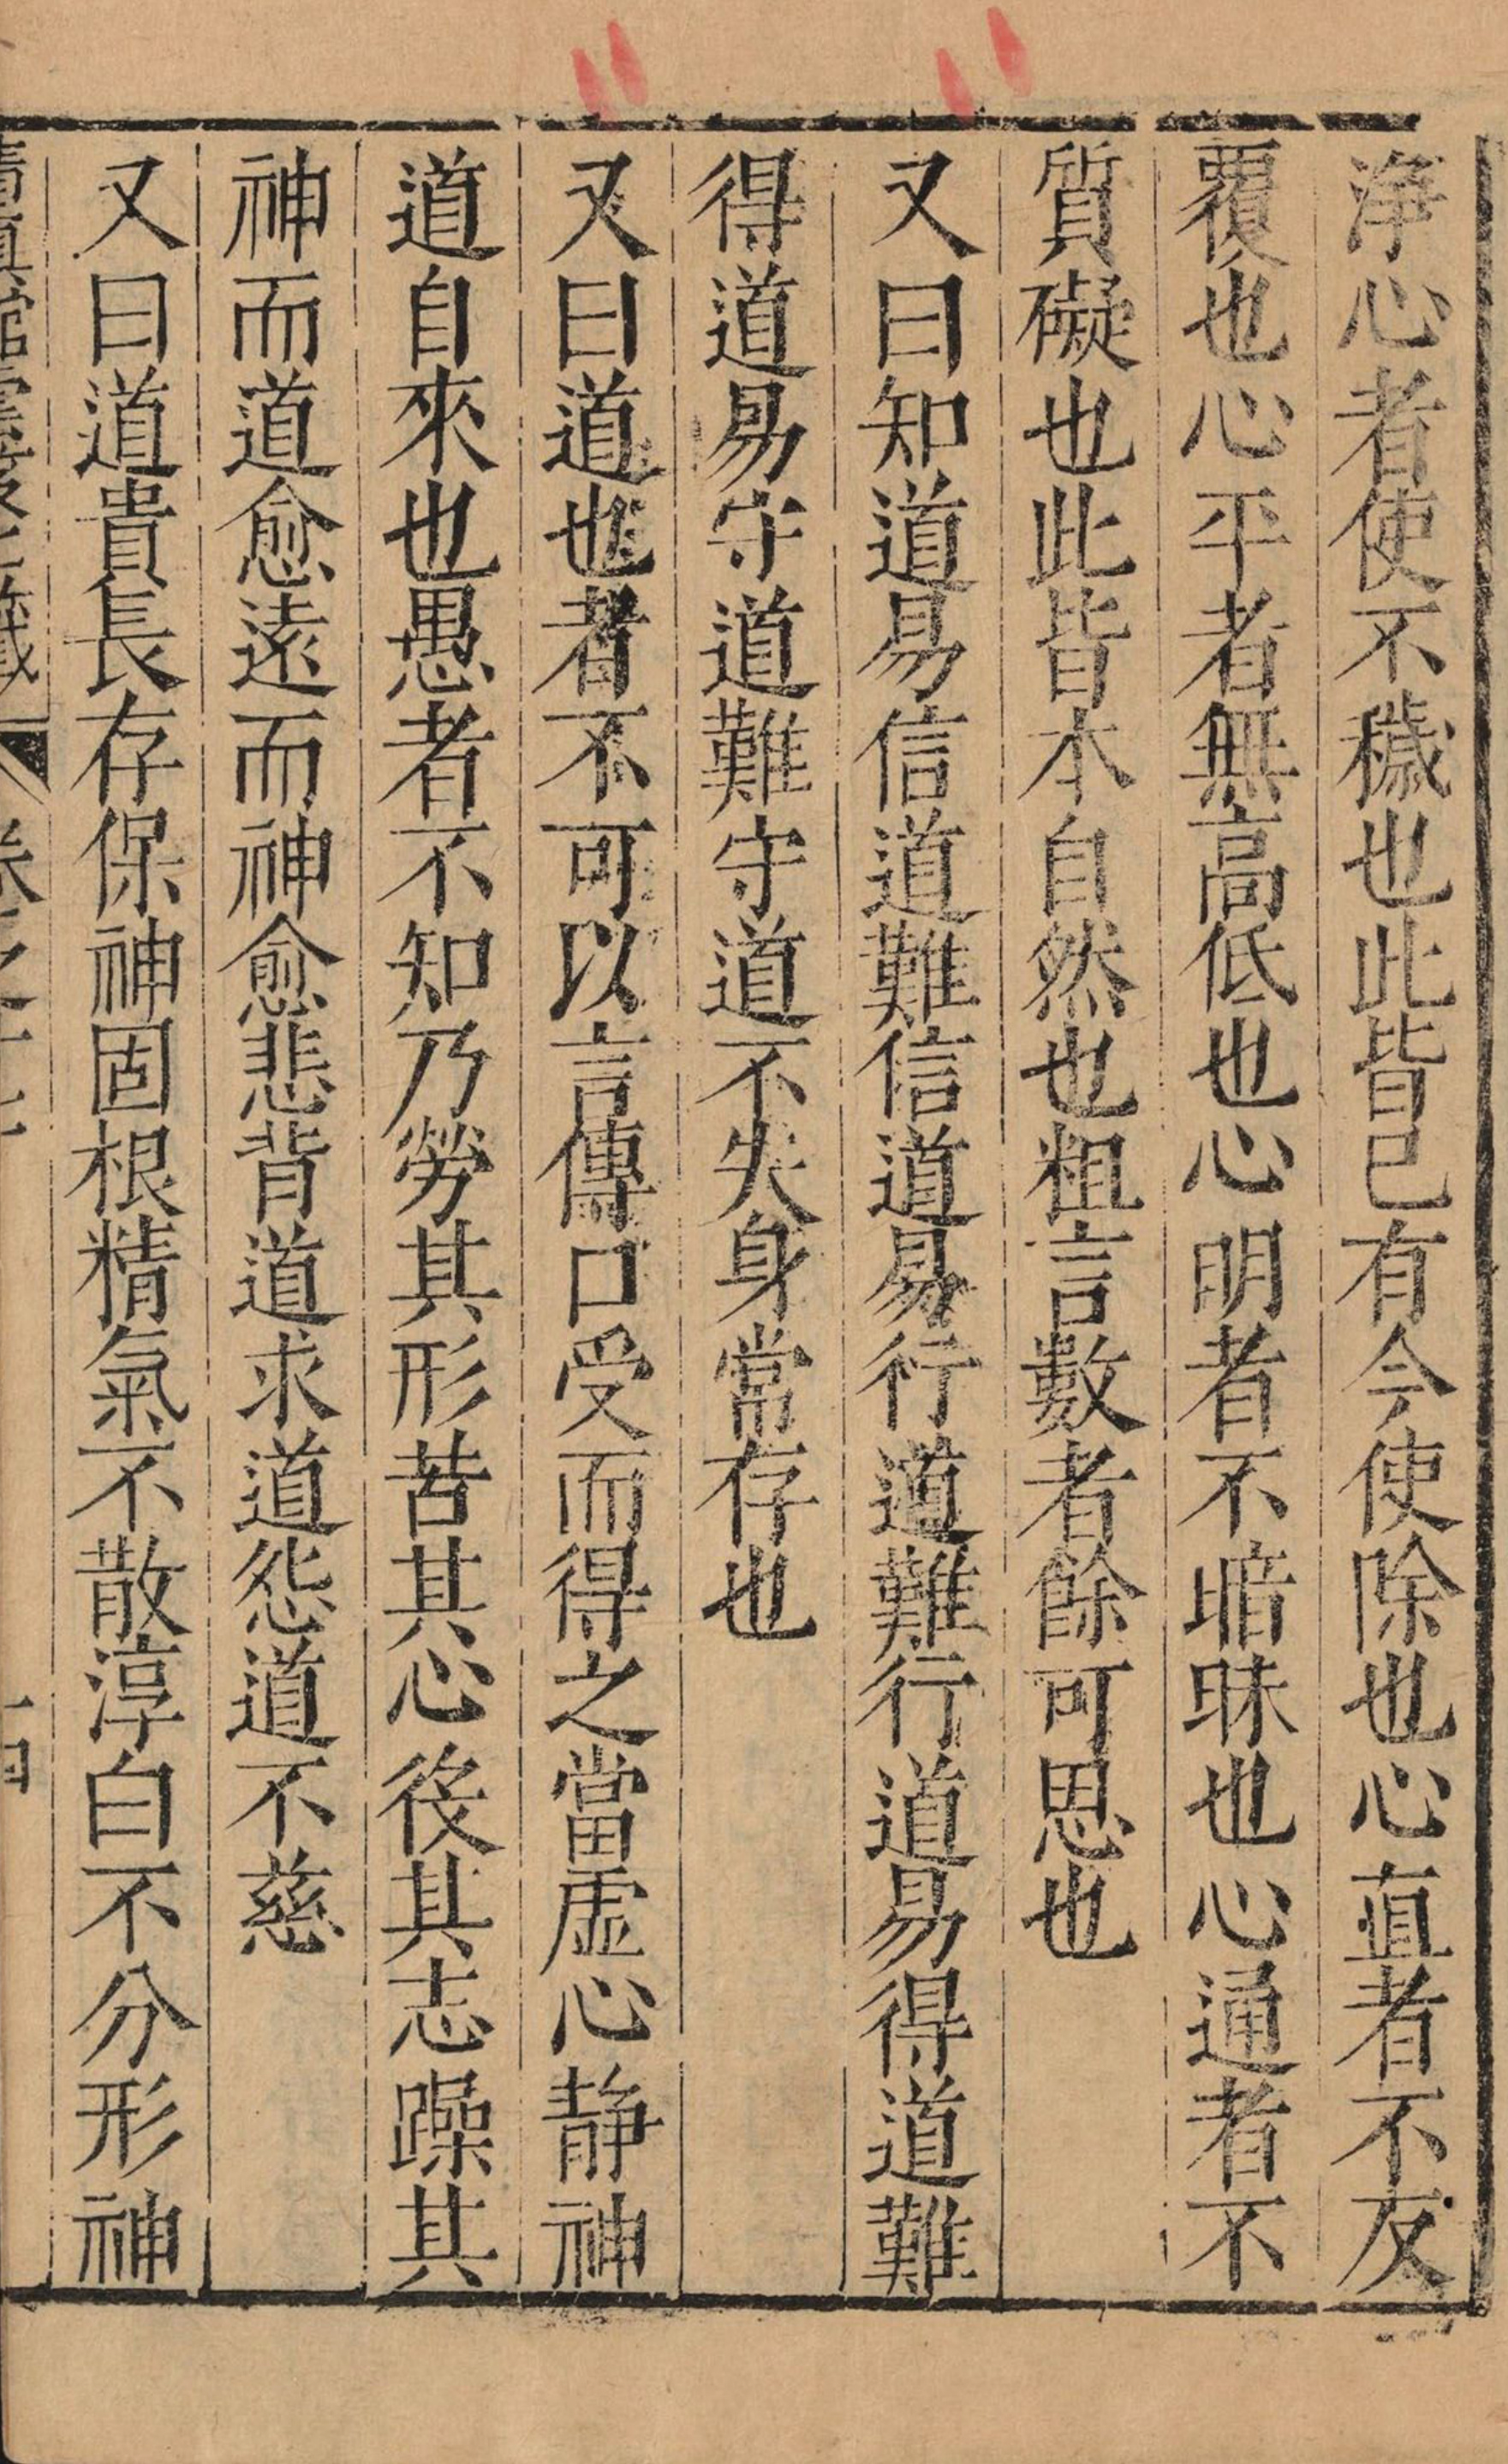 淨心者使不穢也此皆已有今使除也心直者不反
覆也心平者無高低也心明者不暗昧也心通者不
質礙也此皆本自然也粗言數者餘可思也
又曰知道易信道難信道易行道難行道易得道難
得道易守道難守道不失身常存也
又曰道也者不可以言傳口受而得之當虛心靜神
道自來也愚者不知乃勞其形苦其心役其志躁其
神而道愈遠而神愈悲背道求道怨道不慈
又曰道貴長存保神固根精氣不散淳白不分形神